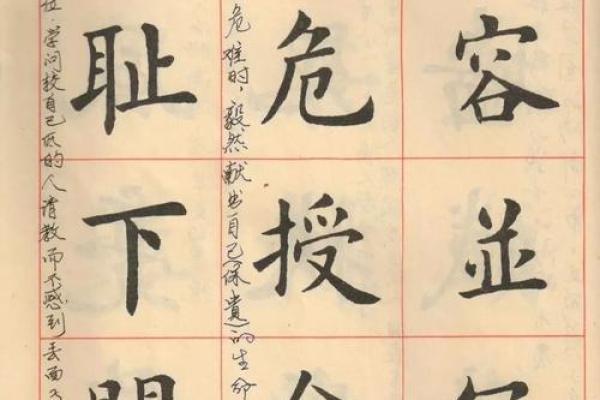 容並
危授
危难时，毅然献出自己(保貴)的生命
耻下
位、学问较自己低的人请教而不感到丢面子